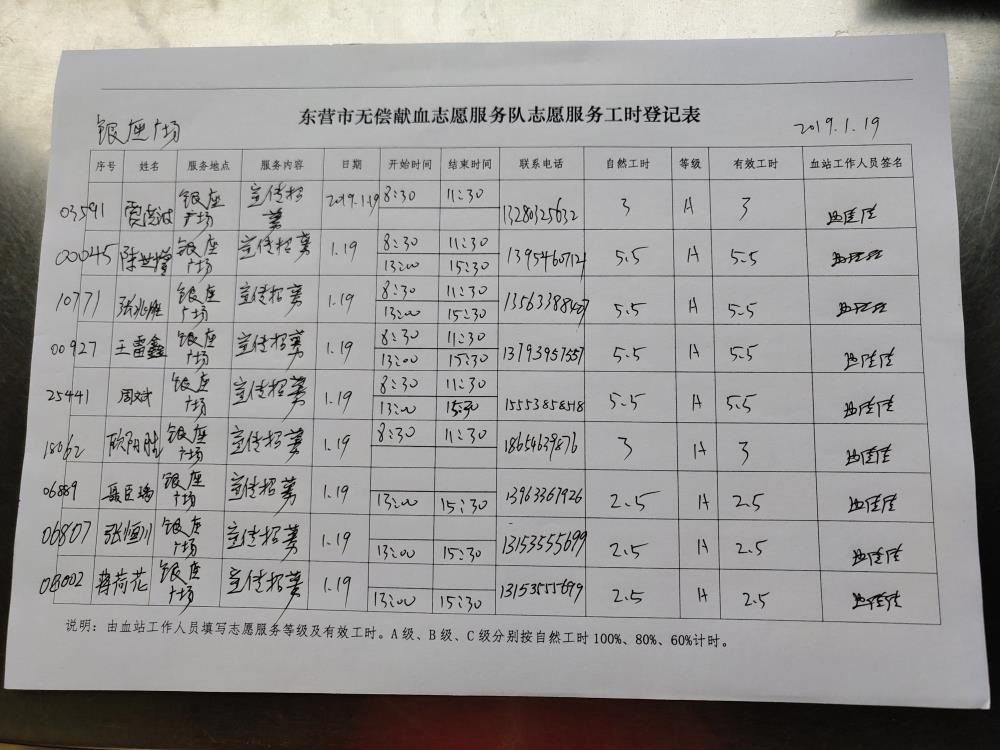 东营市无偿献血志愿服务队志愿服务工时登记表
银座广场 2019.1.19
序号 姓名 服务地点 服务内容 日期 开始时间 结束时间 联系电话 自然工时 等级 有效工时 血站工作人员签名
03591 银座广场 宣传招募 2019.1.19 8:30 11:30 13280325632 3 A 3
00045 银座广场 宣传招募 1.19 8:30 11:30 5.5 A 5.5
13:00 15:30
10771 张兆胜 银座广场 宣传招募 1.19 8:30 11:30 5.5 A 5.5
13:00 15:30
00927 王雷鑫 银座广场 宣传招募 1.19 8:30 11:30 13793957557 5.5 A 5.5
13:00 15:30
25441 周斌 银座广场 宣传招募 1.19 8:30 11:30 15553858518 5.5 A 5.5
13:00 15:30
18062 欧阳胜 银座广场 宣传招募 1.19 8:30 11:30 18654639876 3 A 3
06889 聂臣瑞 银座广场 宣传招募 1.19 13:00 15:30 13963367926 2.5 A 2.5
06807 张恒川 银座广场 宣传招募 1.19 13:00 15:30 13153555699 2.5 A 2.5
08002 蒋荷花 银座广场 宣传招募 1.19 13:00 15:30 13153555699 2.5 A 2.5
说明：由血站工作人员填写志愿服务等级及有效工时。A级、B级、C级分别按自然工时100%、80%、60%计时。